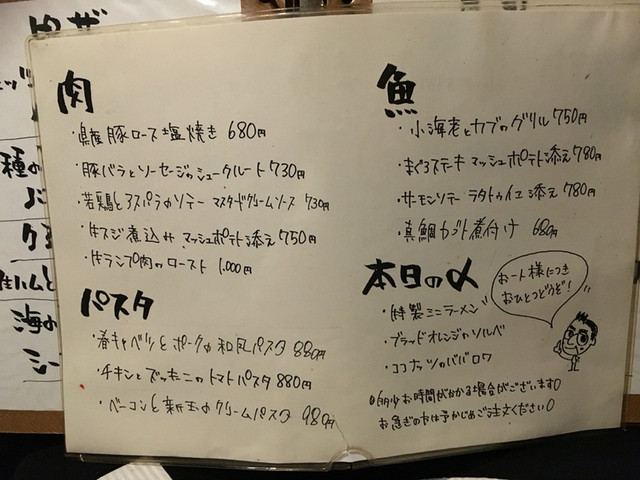 肉
・県産豚ロース塩焼き 680円
・豚バラとソーセージのシュークルート 730円
・若鶏とアスパラのソテー マスタードクリームソース 730円
・牛スジ煮込み マッシュポテト添え 750円
・牛ランプ肉のロースト 1,000円
パスタ
・春キャベツとポークの和風パスタ 880円
・チキンとズッキーニのトマトパスタ 880円
・ベーコンと新玉のクリームパスタ 980円
魚
・小海老とカブのグリル 750円
・まぐろステーキ マッシュポテト添え 780円
・サーモンソテー ラタトゥイユ添え 780円
・真鯛カブト煮付け 680円
本日の〆
・特製ミニラーメン
・ブラッドオレンジのソルベ
・ココナッツのババロワ
お一人様につき
おひとつどうぞ!
多少お時間がかかる場合がございます。
お急ぎの方は予かじめご注文ください。
種の
海の